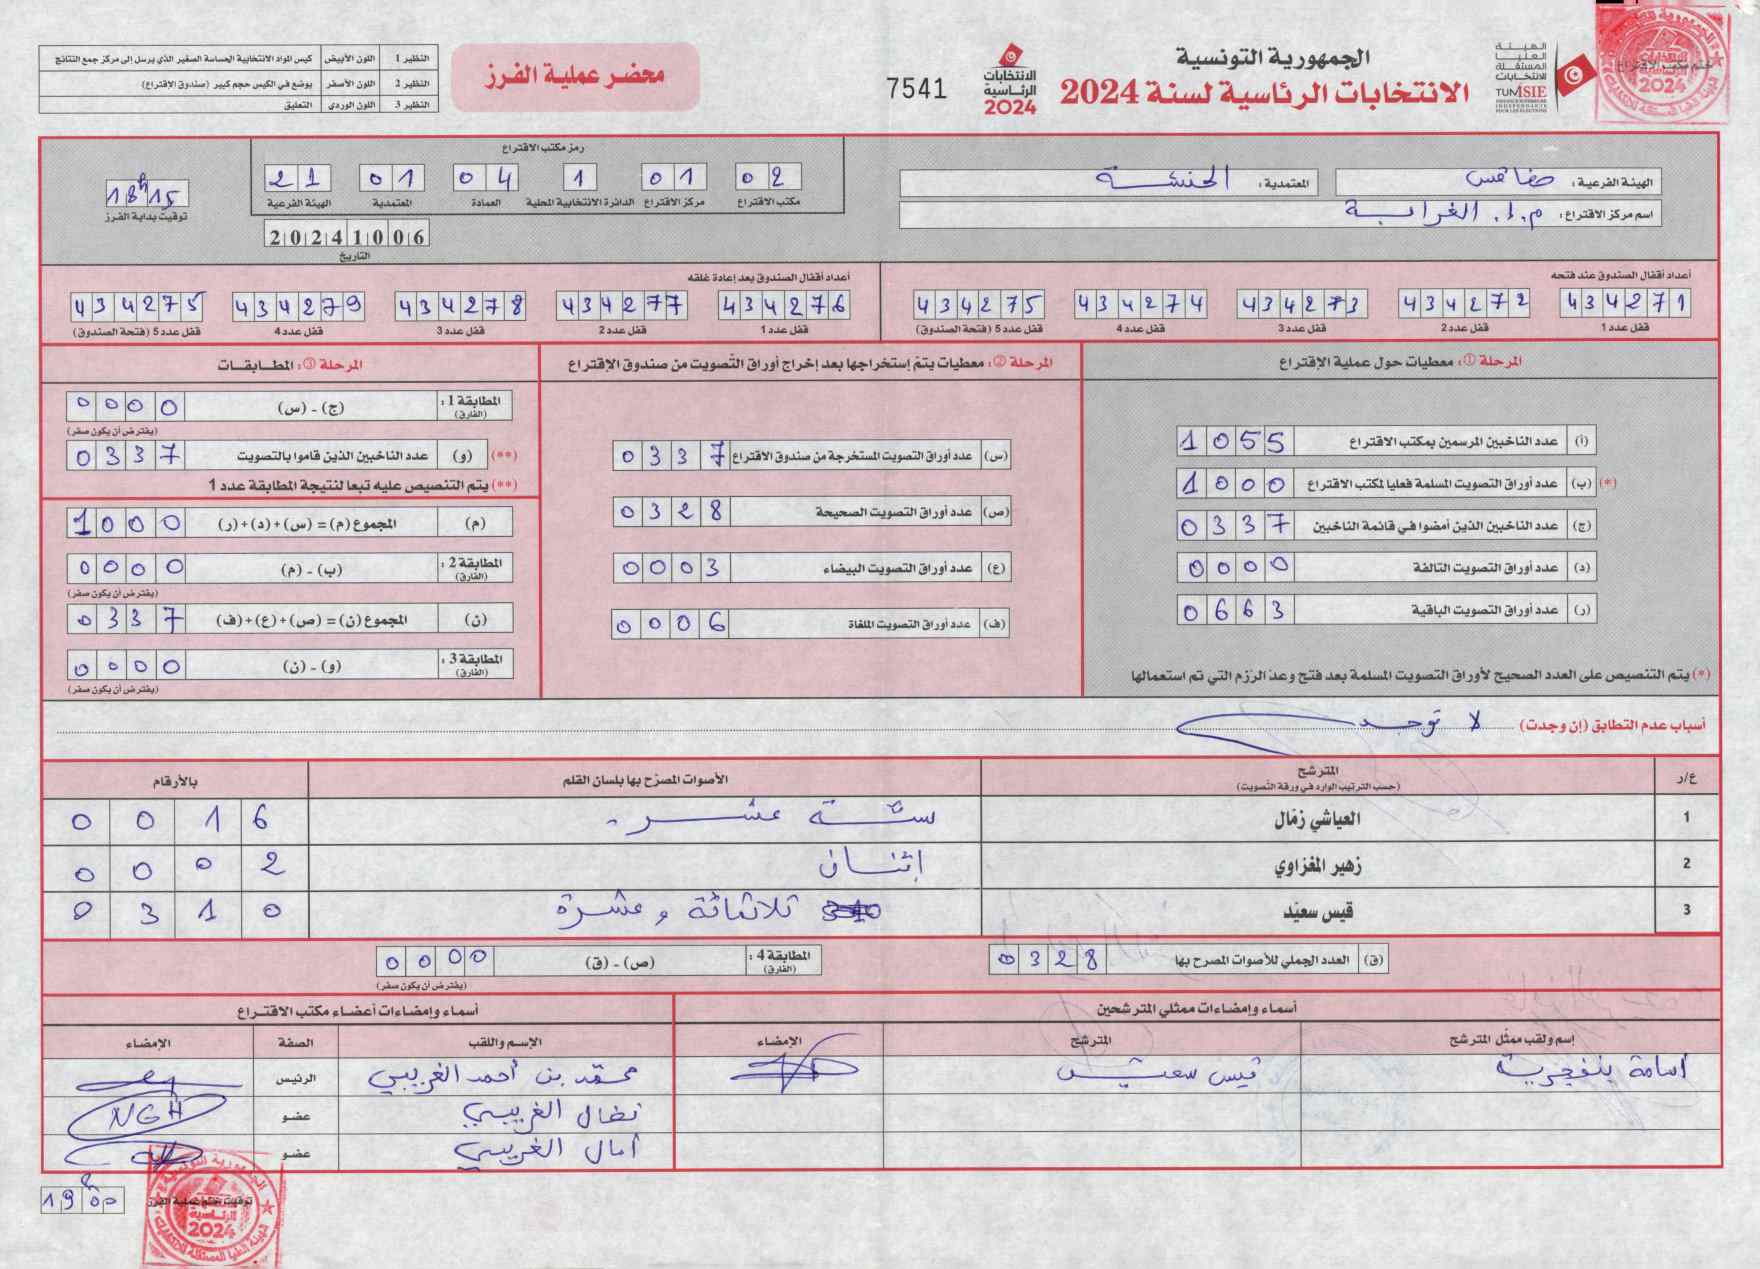 الجمهورية التونسية
الانتخابات الرئاسية لسنة 2024
الهيئة
العليا
المستقلة
للانتخابات
TUNISIE
الانتخابات
الرئاسية
2024
7541
محضر عملية الفرز
النظير 1 اللون الأبيض كيس المواد الانتخابية الحساسة الصغير الذي يرسل إلى مركز جمع النتائج
النظير 2 اللون الأصفر يوضع في الكيس حجم كبير (صندوق الإقتراع)
النظير 3 اللون الوردي التعليق
الهيئة الفرعية: صفاقس المعتمدية: الحنشة
اسم مركز الاقتراع: م.ا. الغرابة
رمز مكتب الاقتراع
02 01 1 04 01 21
مكتب الاقتراع مركز الاقتراع الدائرة الانتخابية المحلية العمادة المعتمدية الهيئة الفرعية
20241006
التاريخ
18h15
توقيت بداية الفرز
أعداد أقفال الصندوق عند فتحه
434271 434272 434273 434274 434275
قفل عدد 1 قفل عدد 2 قفل عدد 3 قفل عدد 4 قفل عدد 5 (فتحة الصندوق)
أعداد أقفال الصندوق بعد إعادة غلقه
434276 434277 434278 434279 434275
قفل عدد 1 قفل عدد 2 قفل عدد 3 قفل عدد 4 قفل عدد 5 (فتحة الصندوق)
المرحلة ①: معطيات حول عملية الإقتراع
(أ) عدد الناخبين المرسمين بمكتب الاقتراع 1055
(*) (ب) عدد أوراق التصويت المسلمة فعليا لمكتب الاقتراع 1000
(ج) عدد الناخبين الذين أمضوا في قائمة الناخبين 0337
(د) عدد أوراق التصويت التالفة 0000
(ر) عدد أوراق التصويت الباقية 0663
(*) يتم التنصيص على العدد الصحيح لأوراق التصويت المسلمة بعد فتح وعد الرزم التي تم استعمالها
المرحلة ②: معطيات يتم إستخراجها بعد إخراج أوراق التصويت من صندوق الإقتراع
(س) عدد أوراق التصويت المستخرجة من صندوق الاقتراع 0337
(ص) عدد أوراق التصويت الصحيحة 0328
(ع) عدد أوراق التصويت البيضاء 0003
(ف) عدد أوراق التصويت الملغاة 0006
المرحلة ③: المطابقات
المطابقة 1: (الفارق) (ج) - (س) 0000
(يفترض أن يكون صفر)
(**) (و) عدد الناخبين الذين قاموا بالتصويت 0337
(**) يتم التنصيص عليه تبعا لنتيجة المطابقة عدد 1
(م) المجموع (م) = (س)+(د)+(ر) 1000
المطابقة 2: (الفارق) (ب) - (م) 0000
(يفترض أن يكون صفر)
(ن) المجموع (ن) = (ص)+(ع)+(ف) 0337
المطابقة 3: (الفارق) (و) - (ن) 0000
(يفترض أن يكون صفر)
أسباب عدم التطابق (إن وجدت) لا توجد
ع/ر المترشح (حسب الترتيب الوارد في ورقة التصويت) الأصوات المصرّح بها بلسان القلم بالأرقام
1 العياشي زمّال ستة عشر 0016
2 زهير المغزاوي إثنان 0002
3 قيس سعيّد ثلاثمائة وعشرة 0310
(ق) العدد الجملي للأصوات المصرح بها 0328
المطابقة 4: (الفارق) (ص) - (ق) 0000
(يفترض أن يكون صفر)
أسماء وإمضاءات ممثلي المترشحين
إسم ولقب ممثّل المترشح المترشح الإمضاء
أسامة بنفجرية قيس سعيد
أسماء وإمضاءات أعضاء مكتب الاقتراع
الإسم واللقب الصفة الإمضاء
محمد بن أحمد الغريبي الرئيس
نضال الغريبي عضو NGH
أمال الغريبي عضو
توقيت ختم عملية الفرز 19h00
ختم مكتب الإقتراع
2024
الرئاسية
2024